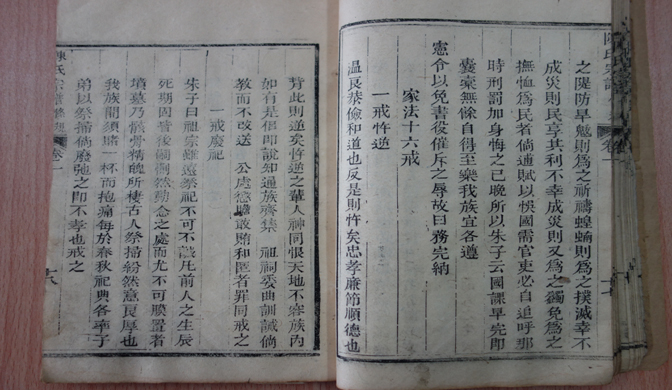 陳氏宗譜
卷一
之隄防旱魃則為之祈禱蝗蝻則為之撲滅幸不
成災則民享其利不幸成災則又為之蠲免為之
撫恤為民者倘逋賦以悞國需官吏必自追呼那
時刑罰加身悔之已晚所以朱子云國課早完即
囊橐無餘自得至樂我族宜各遵
憲令以免書役催斥之辱故曰務完納
家法十六戒
一戒忤逆
溫良恭儉和道也反是則忤矣忠孝廉節順德也
背此則逆矣忤逆之輩人神同恨天地不容族內
如有是侶即說知通族齊集 祖祠委曲訓誡倘
教而不改送 公處懲敢賄和匿者罪同戒之
一戒廢祀
朱子曰祖宗雖遠祭祀不可不誠凡前人之生辰
死期固當後嗣惻然動念之處而尤不可膜置者
墳墓乃骸骨精魄所棲古人祭掃紛然意良厚也
我族閤須一杯而抱痛每於春秋祀典各率子
弟以祭掃倘廢弛之即不孝也戒之
陳氏宗譜
卷一
十八